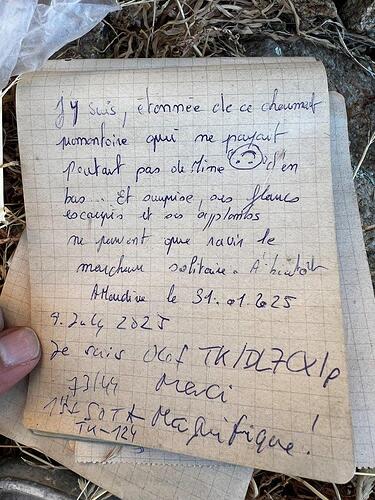 J'y suis, étonnée de ce charmant
promontoire qui ne payait
pourtant pas de mine d'en
bas... Et surprise, ses flancs
escarpés et ses applombs
ne peuvent que ravir le
marcheur solitaire. A bientôt
le 31.01.2025
9. July 2025
Je suis Olof TK/DL7CX/p
73/44 Merci
SOTA Magnifique!
TK-124